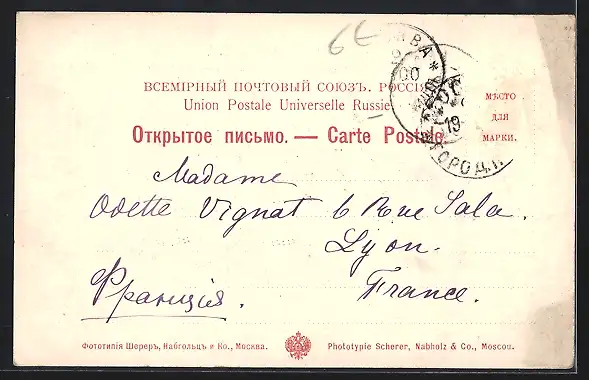 6Є
ВСЕМІРНЫЙ ПОЧТОВЫЙ СОЮЗЪ. РОССІЯ
Union Postale Universelle Russie
Открытое письмо. — Carte Postale
МѢСТО
ДЛЯ
МАРКИ.
Madame
Odette Vignat 6 Rue Sala.
Lyon.
Франція.
France.
Фототипія Шереръ, Набгольцъ и Ко., Москва.
Phototypie Scherer, Nabholz & Co., Moscou.